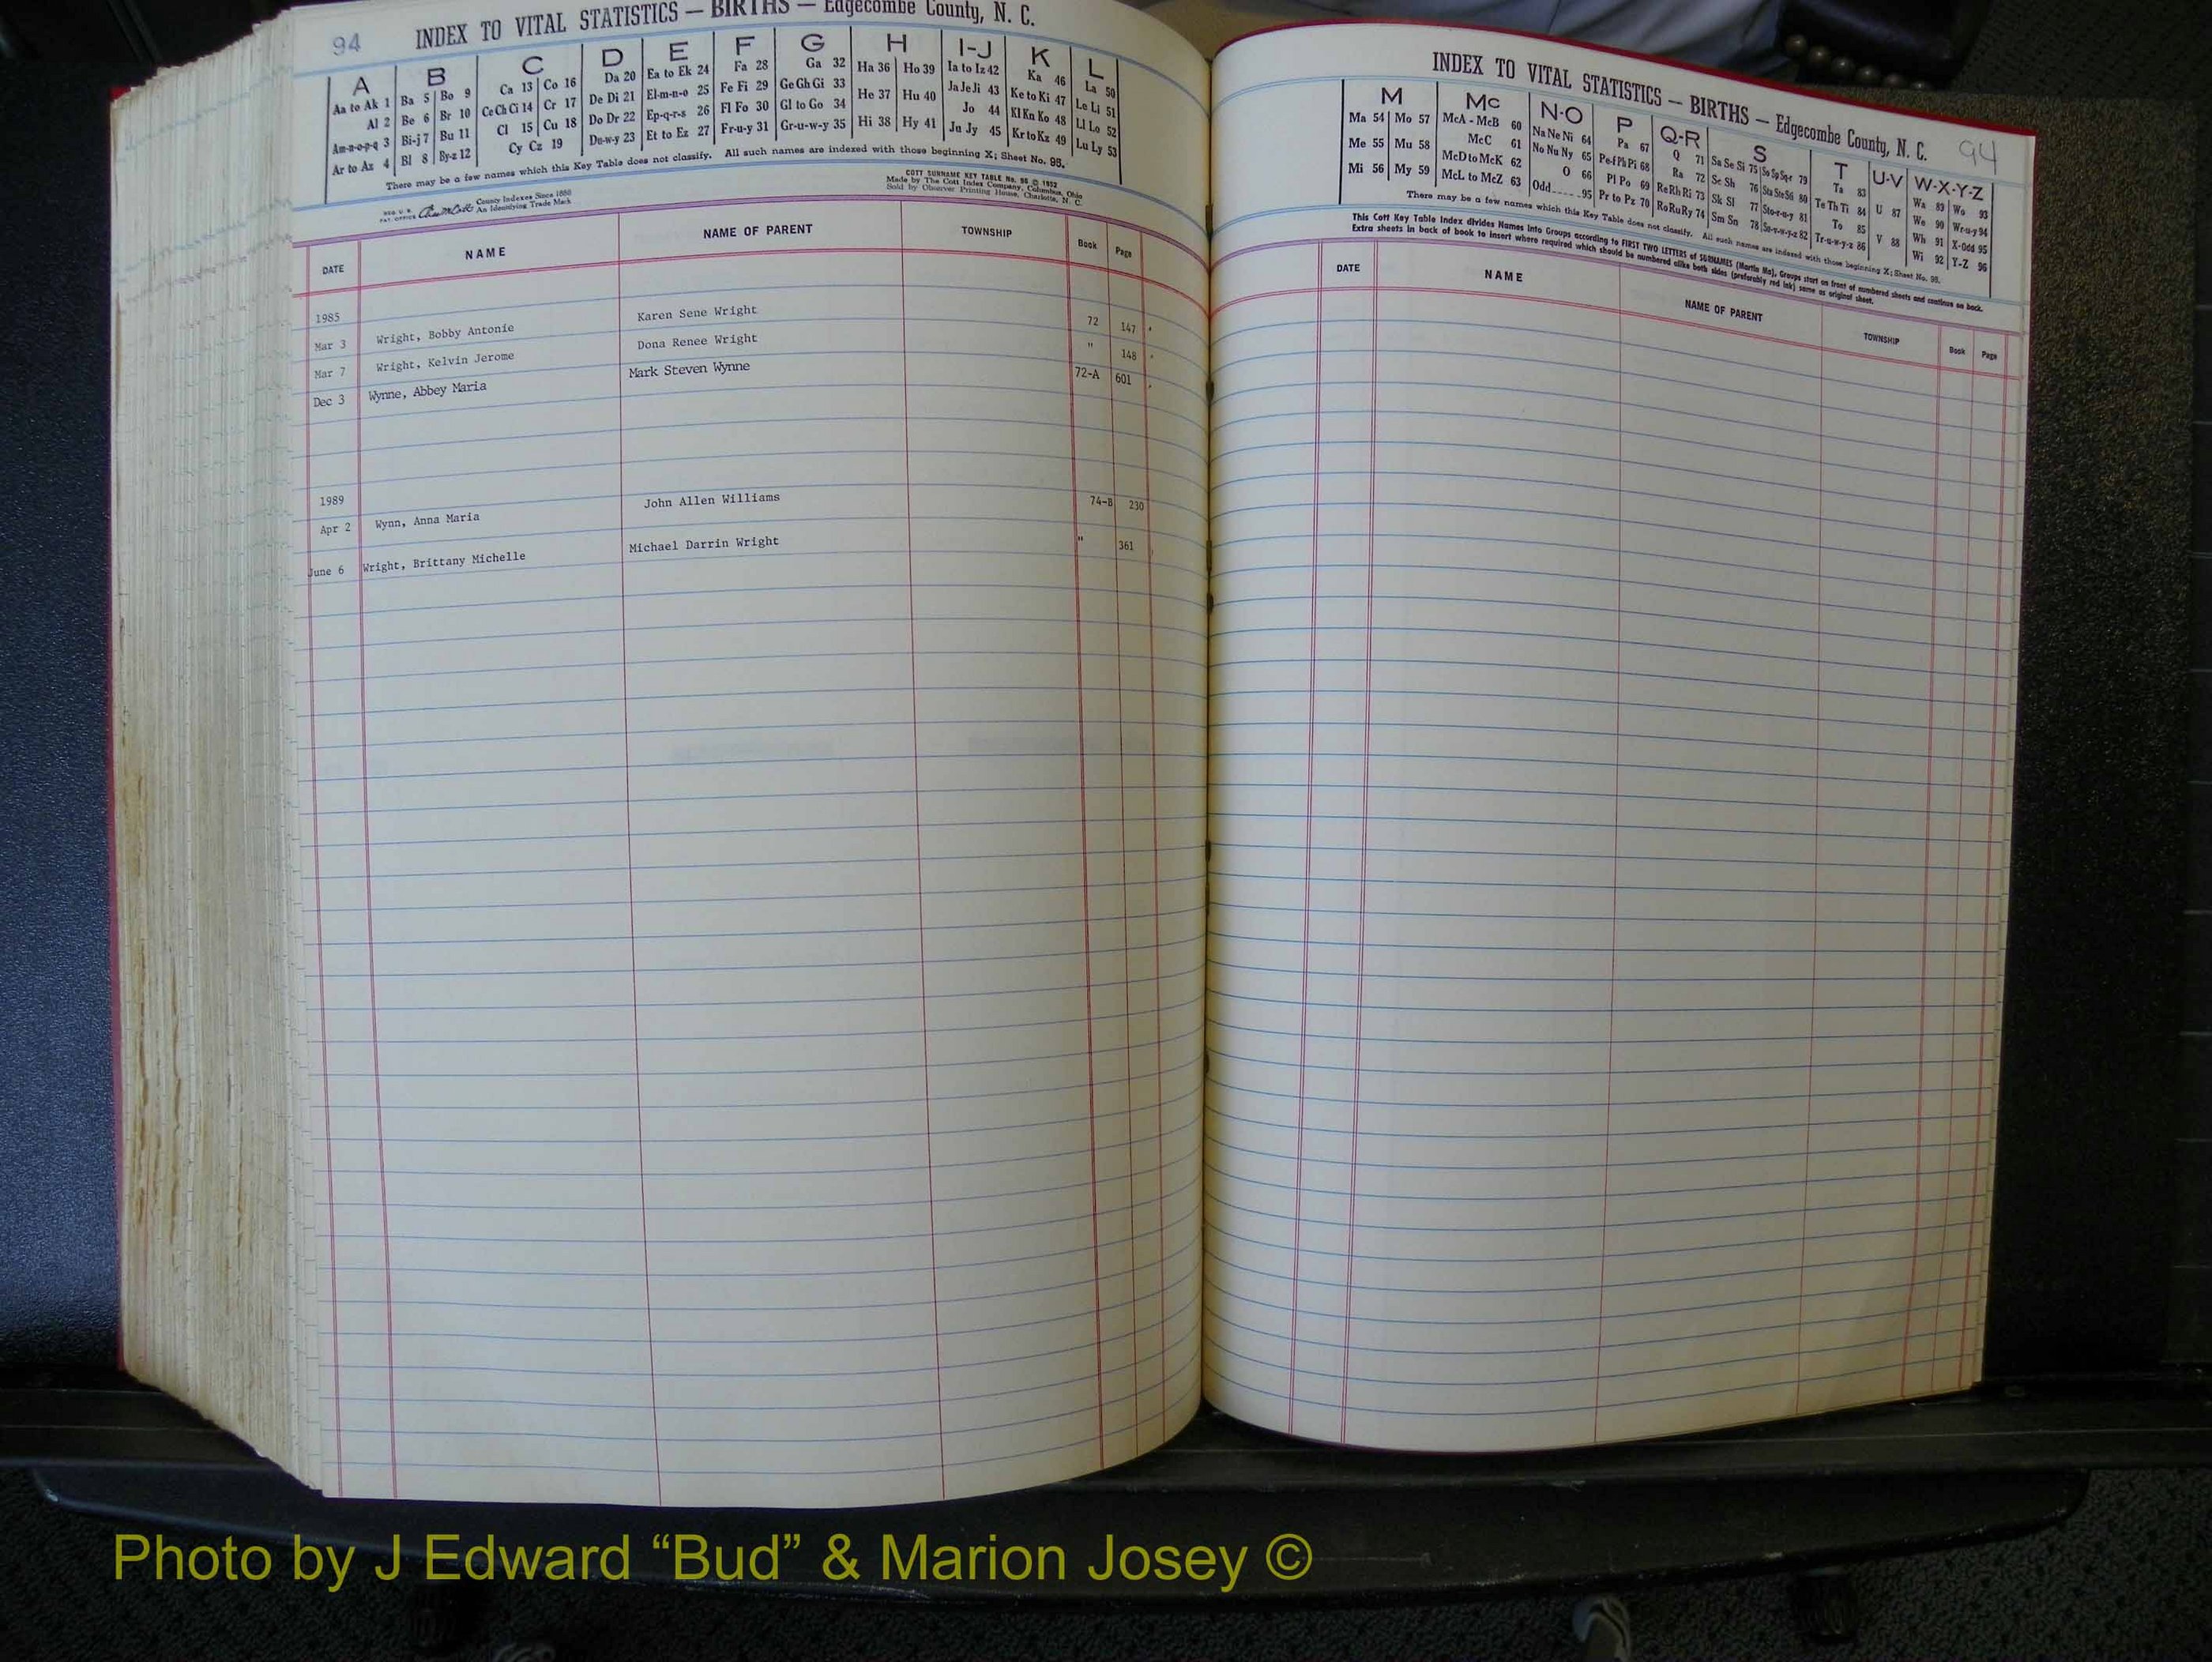 94 INDEX TO VITAL STATISTICS — BIRTHS — Edgecombe County, N. C.
A B C D E F G H I-J K L
Aa to Ak 1 Ba 5 Bo 9 Ca 13 Co 16 Da 20 Ea to Ek 24 Fa 28 Ga 32 Ha 36 Ho 39 Ia to Iz 42 Ka 46 La 50
Al 2 Be 6 Br 10 Ce Ch Ci 14 Cr 17 De Di 21 El-m-n-o 25 Fe Fi 29 Ge Gh Gi 33 He 37 Hu 40 Ja Je Ji 43 Ke to Ki 47 Le Li 51
Am-n-o-p-q 3 Bi-j 7 Bu 11 Cl 15 Cu 18 Do Dr 22 Ep-q-r-s 26 Fl Fo 30 Gl to Go 34 Hi 38 Hy 41 Jo 44 Kl Kn Ko 48 Ll Lo 52
Ar to Az 4 Bl 8 By-z 12 Cy Cz 19 Du-w-y 23 Et to Ez 27 Fr-u-y 31 Gr-u-w-y 35 Ju Jy 45 Kr to Kz 49 Lu Ly 53
There may be a few names which this Key Table does not classify. All such names are indexed with those beginning X; Sheet No. 95.
REG U.S. PAT OFFICE County Indexes Since 1888
An Identifying Trade Mark
COTT SURNAME KEY TABLE No. 96 © 1952
Made by The Cott Index Company, Columbus, Ohio
Sold by Observer Printing House, Charlotte, N. C.
DATE NAME NAME OF PARENT TOWNSHIP Book Page
1985
Mar 3 Wright, Bobby Antonie Karen Sene Wright 72 147
Mar 7 Wright, Kelvin Jerome Dona Renee Wright " 148
Dec 3 Wynne, Abbey Maria Mark Steven Wynne 72-A 601
1989
Apr 2 Wynn, Anna Maria John Allen Williams 74-B 230
June 6 Wright, Brittany Michelle Michael Darrin Wright " 361
INDEX TO VITAL STATISTICS — BIRTHS — Edgecombe County, N. C. 94
M Mc N-O P Q-R S T U-V W-X-Y-Z
Ma 54 Mo 57 McA - McB 60 Na Ne Ni 64 Pa 67 Q 71 Sa Se Si 75 So Sp Sq-r 79 Ta 83 U 87 Wa 89 Wo 93
Me 55 Mu 58 McC 61 No Nu Ny 65 Pe-f Ph Pi 68 Ra 72 Sc Sh 76 Sta Ste Sti 80 Te Th Ti 84 V 88 We 90 Wr-u-y 94
Mi 56 My 59 McD to McK 62 O 66 Pl Po 69 Re Rh Ri 73 Sk Sl 77 Sto-r-u-y 81 To 85 Wh 91 X-Odd 95
McL to McZ 63 Odd.....95 Pr to Pz 70 Ro Ru Ry 74 Sm Sn 78 Su-v-w-y-z 82 Tr-u-w-y-z 86 Wi 92 Y-Z 96
There may be a few names which this Key Table does not classify. All such names are indexed with those beginning X; Sheet No. 95.
This Cott Key Table Index divides Names into Groups according to FIRST TWO LETTERS of SURNAMES (Martin Ma). Groups start on front of numbered sheets and continue on back.
Extra sheets in back of book to insert where required which should be numbered alike both sides (preferably red ink) same as original sheet.
DATE NAME NAME OF PARENT TOWNSHIP Book Page
Photo by J Edward “Bud” & Marion Josey ©